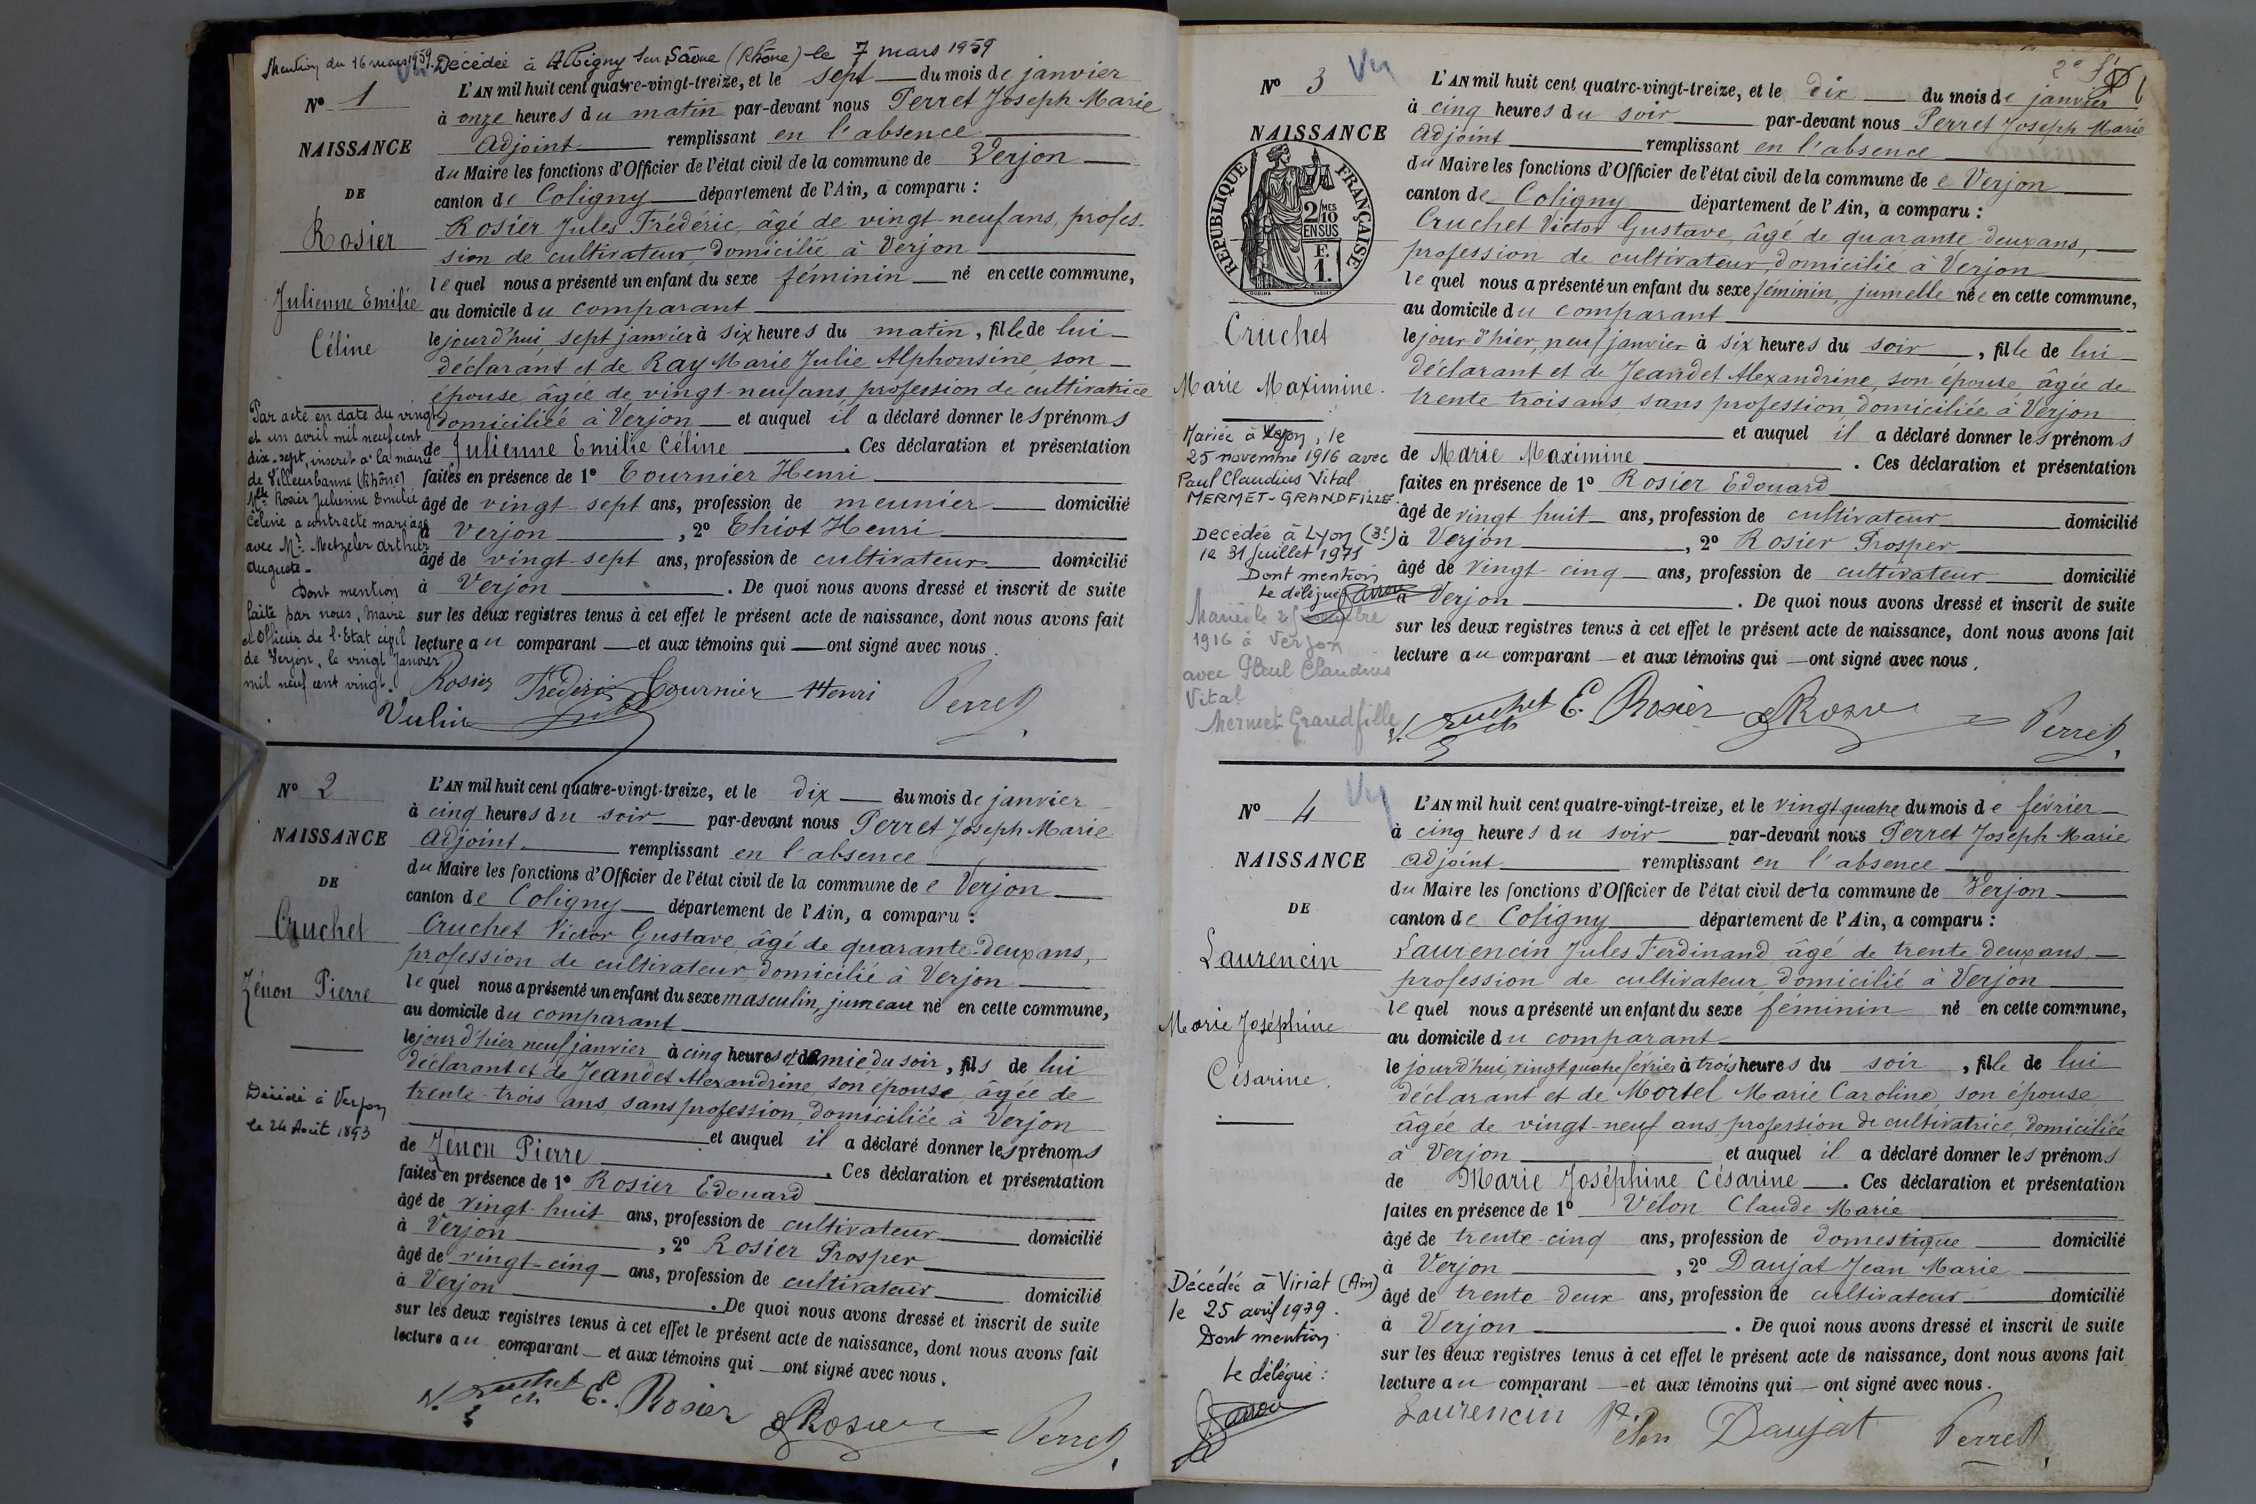 Mention du 16 mars 1959. Décédée à Albigny sur Saône (Rhône) le 7 mars 1959
N° 1
NAISSANCE
DE
Rosier
Julienne Emilie
Céline
Par acte en date du vingt
et un avril mil neuf cent
dix-sept, inscrit à la mairie
de Villeurbanne (Rhône)
Melle Rosier Julienne Emilie
Céline a contracté mariage
avec Mr. Metzeler Arthur
Auguste.
Dont mention
faite par nous, Maire
et Officier de l'Etat civil
de Verjon, le vingt Janvier
mil neuf cent vingt.
L'AN mil huit cent quatre-vingt-treize, et le sept du mois de janvier
à onze heures du matin par-devant nous Perret Joseph Marie
Adjoint remplissant en l'absence
du Maire les fonctions d'Officier de l'état civil de la commune de Verjon
canton de Coligny département de l'Ain, a comparu :
Rosier Jules Frédéric, âgé de vingt-neuf ans, profes-
sion de cultivateur, domicilié à Verjon
lequel nous a présenté un enfant du sexe féminin né en cette commune,
au domicile du comparant
le jourd'hui, sept janvier à six heures du matin, fille de lui
déclarant et de Ray Marie Julie Alphonsine, son
épouse âgée de vingt-neuf ans, profession de cultivatrice
domiciliée à Verjon et auquel il a déclaré donner les prénoms
de Julienne Emilie Céline. Ces déclaration et présentation
faites en présence de 1° Tournier Henri
âgé de vingt-sept ans, profession de meunier domicilié
à Verjon, 2° Thiot Henri
âgé de vingt-sept ans, profession de cultivateur domicilié
à Verjon. De quoi nous avons dressé et inscrit de suite
sur les deux registres tenus à cet effet le présent acte de naissance, dont nous avons fait
lecture au comparant et aux témoins qui ont signé avec nous.
Rosier Frédéric Tournier Henri Perret
N° 2
NAISSANCE
DE
Cruchet
Zénon Pierre
Décédé à Verjon
le 24 Août 1893
L'AN mil huit cent quatre-vingt-treize, et le dix du mois de janvier
à cinq heures du soir par-devant nous Perret Joseph Marie
Adjoint remplissant en l'absence
du Maire les fonctions d'Officier de l'état civil de la commune de e Verjon
canton de Coligny département de l'Ain, a comparu :
Cruchet Victor Gustave âgé de quarante-deux ans,
profession de cultivateur, domicilié à Verjon
lequel nous a présenté un enfant du sexe masculin, jumeau né en cette commune,
au domicile du comparant
le jour d'hier neuf janvier à cinq heures et demie du soir, fils de lui
déclarant et de Jeandet Alexandrine, son épouse, âgée de
trente-trois ans, sans profession, domiciliée à Verjon
et auquel il a déclaré donner les prénoms
de Zénon Pierre. Ces déclaration et présentation
faites en présence de 1° Rosier Edouard
âgé de vingt-huit ans, profession de cultivateur domicilié
à Verjon, 2° Rosier Prosper
âgé de vingt-cinq ans, profession de cultivateur domicilié
à Verjon. De quoi nous avons dressé et inscrit de suite
sur les deux registres tenus à cet effet le présent acte de naissance, dont nous avons fait
lecture au comparant et aux témoins qui ont signé avec nous.
V. Cruchet E. Rosier P. Rosier Perret
2e
N° 3
NAISSANCE
REPUBLIQUE FRANÇAISE
2/10 MES EN SUS
F. 1.
Cruchet
Marie Maximine.
Mariée à Verjon, le
25 novembre 1916 avec
Paul Claudius Vital
MERMET-GRANDFILLE.
Décédée à Lyon (3e)
le 31 juillet 1971
Dont mention
Le délégué
Mariée le 25 novembre
1916 à Verjon
avec Paul Claudius
Vital
Mermet Grandfille
L'AN mil huit cent quatre-vingt-treize, et le dix du mois de janvier
à cinq heures du soir par-devant nous Perret Joseph Marie
Adjoint remplissant en l'absence
du Maire les fonctions d'Officier de l'état civil de la commune de e Verjon
canton de Coligny département de l'Ain, a comparu :
Cruchet Victor Gustave âgé de quarante-deux ans,
profession de cultivateur, domicilié à Verjon
lequel nous a présenté un enfant du sexe féminin, jumelle née en cette commune,
au domicile du comparant
le jour d'hier, neuf janvier à six heures du soir, fille de lui
déclarant et de Jeandet Alexandrine, son épouse âgée de
trente trois ans, sans profession, domiciliée à Verjon
et auquel il a déclaré donner les prénoms
de Marie Maximine. Ces déclaration et présentation
faites en présence de 1° Rosier Edouard
âgé de vingt huit ans, profession de cultivateur domicilié
à Verjon, 2° Rosier Prosper
âgé de vingt-cinq ans, profession de cultivateur domicilié
à Verjon. De quoi nous avons dressé et inscrit de suite
sur les deux registres tenus à cet effet le présent acte de naissance, dont nous avons fait
lecture au comparant et aux témoins qui ont signé avec nous.
V. Cruchet E. Rosier P. Rosier Perret
N° 4
NAISSANCE
DE
Laurencin
Marie Joséphine
Césarine.
Décédée à Viriat (Ain)
le 25 avril 1979.
Dont mention.
Le délégué :
L'AN mil huit cent quatre-vingt-treize, et le vingt quatre du mois de février
à cinq heures du soir par-devant nous Perret Joseph Marie
Adjoint remplissant en l'absence
du Maire les fonctions d'Officier de l'état civil de la commune de Verjon
canton de Coligny département de l'Ain, a comparu :
Laurencin Jules Ferdinand âgé de trente-deux ans
profession de cultivateur domicilié à Verjon
lequel nous a présenté un enfant du sexe féminin né en cette commune,
au domicile du comparant
le jourd'hui, vingt quatre février à trois heures du soir, fille de lui
déclarant et de Mortel Marie Caroline, son épouse
âgée de vingt-neuf ans, profession de cultivatrice, domiciliée
à Verjon et auquel il a déclaré donner les prénoms
de Marie Joséphine Césarine. Ces déclaration et présentation
faites en présence de 1° Vélon Claude Marie
âgé de trente-cinq ans, profession de domestique domicilié
à Verjon, 2° Daujat Jean Marie
âgé de trente-deux ans, profession de cultivateur domicilié
à Verjon. De quoi nous avons dressé et inscrit de suite
sur les deux registres tenus à cet effet le présent acte de naissance, dont nous avons fait
lecture au comparant et aux témoins qui ont signé avec nous.
Laurencin Vélon Daujat Perret